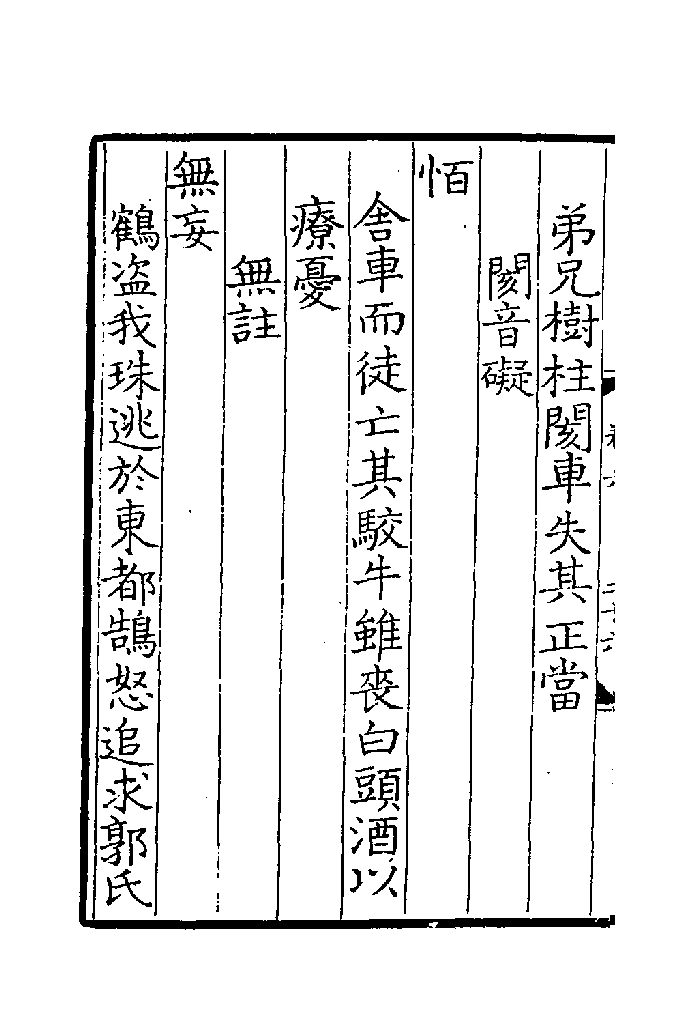 弟兄樹柱閡車失其正當
閡音礙
恒
舍車而徒亡其駮牛雖喪白頭酒以
療憂
無註
無妄
鶴盗我珠逃於東都鵠怒追求郭氏